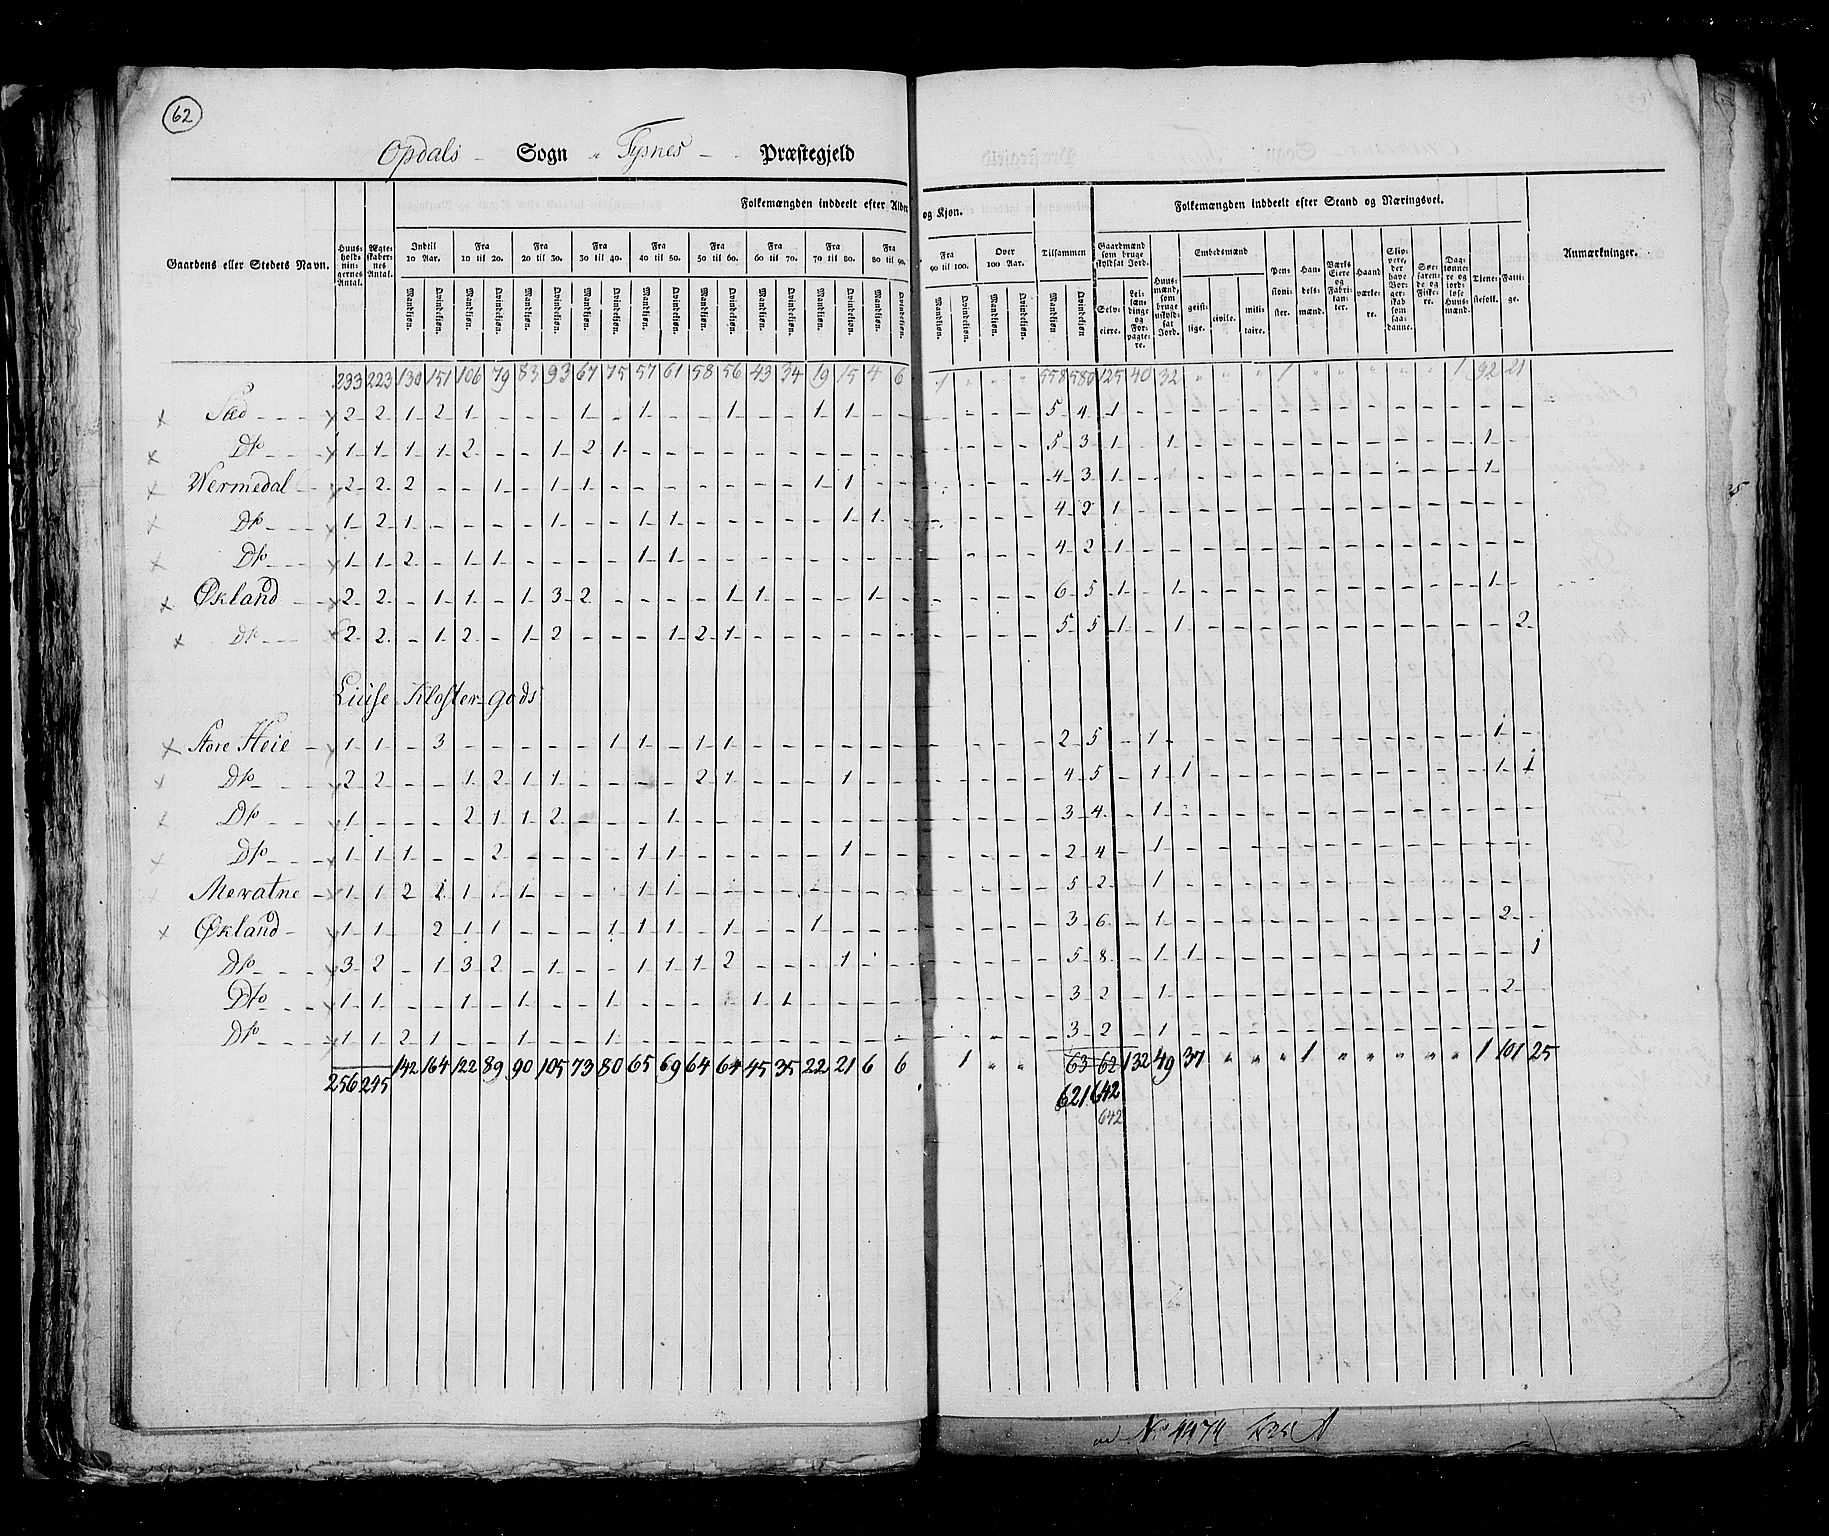 62
Opdals Sogn Tysnes Præstegjeld
Folkemængden inddeelt efter Alder og Kjøn. Folkemængden inddeelt efter Stand og Næringsvei.
Gaardens eller Stedets Navn. Huus-hold-nin-gernes Antal. Ægte-skaber-nes Antal. Indtil 10 Aar. Fra 10 til 20. Fra 20 til 30. Fra 30 til 40. Fra 40 til 50. Fra 50 til 60. Fra 60 til 70. Fra 70 til 80. Fra 80 til 90. Fra 90 til 100. Over 100 Aar. Tilsammen Gaardmænd som bruge skyldsat Jord. Huus-mænd, som bruge uskyld-sat Jord. Embedsmænd Pen-sioni-ster. Han-dels-mænd. Værks Eiere og Fabri-kan-ter. Haand-værke-re. Slip-pere, der have Bor-ger-skab som saa-danne. Søe-faren-de og Fiske-re. Dag-lønne-re og jord-løse Huus-mænd. Tjene-stefolk. Fatti-ge. Anmærkninger.
Mandkjøn. Qvindekjøn. Mandkjøn. Qvindekjøn. Mandkjøn. Qvindekjøn. Mandkjøn. Qvindekjøn. Mandkjøn. Qvindekjøn. Mandkjøn. Qvindekjøn. Mandkjøn. Qvindekjøn. Mandkjøn. Qvindekjøn. Mandkjøn. Qvindekjøn. Mandkjøn. Qvindekjøn. Mandkjøn. Qvindekjøn. Mandkjøn. Qvindekjøn Selv-eiere. Lei-læn-dinge og For-pagte-re. geist-lige. civile. mili-taire.
233 223 130 151 106 79 83 93 67 75 57 61 58 56 43 34 19 15 4 6 1 " " " 558 580 125 40 32 " " " 1 " " " " " 1 92 21
× Sæd - × 2 2 1 2 1 - - - 1 - 1 - - 1 - - 1 1 - - - - - - 5 4 1 - - - - - - - - - - - - - -
× Do - × 1 1 1 1 2 - - 1 2 1 - - - - - - - - - - - - - - 5 3 1 - 1 - - - - - - - - - - 1 -
× Wermedal - × 2 2 2 - - 1 - 1 1 - - - - - - - 1 1 - - - - - - 4 3 1 - - - - - - - - - - - - 1 -
× Do - × 1 2 1 - - - - 1 - - 1 1 - - - - - 1 1 - - - - - 4 2 1 - - - - - - - - - - - - - -
× Do - × 1 1 2 - 1 1 - - - - 1 1 - - - - - - - - - - - - 4 2 1 - - - - - - - - - - - - - -
× Økland - 2 2 - 1 1 - 1 3 2 - - - - 1 1 - - - 1 - - - - - 6 5 1 - 1 - - - - - - - - - - 1 -
× Do - 2 2 - 1 2 - 1 2 - - - 1 2 1 - - - - - - - - - - 5 5 1 - 1 - - - - - - - - - - - 2
Liuse Kloster-gods
× Store Heie - × 1 1 - 3 - - - - - 1 1 - 1 1 - - - - - - - - - - 2 5 - 1 - - - - - - - - - - - 1 -
× Do - × 2 2 - - 1 2 1 1 - - - - 2 1 - - - 1 - - - - - - 4 5 - 1 1 - - - - - - - - - - 1 1
× Do - × 1 - - - 2 1 1 2 - - - 1 - - - - - - - - - - - - 3 4 - 1 - - - - - - - - - - - - -
× Do - × 1 1 1 - - 2 - - - - 1 1 - - - - - 1 - - - - - - 2 4 - 1 - - - - - - - - - - - - -
Mevatne - × 1 1 2 1 1 - 1 - - - 1 1 - - - - - - - - - - - - 5 2 - 1 - - - - - - - - - - - - -
× Økland - × 1 1 - 2 1 1 - - - 1 1 1 - 1 - - 1 - - - - - - - 3 6 - 1 - - - - - - - - - - - 2 -
Do - × 3 2 - 1 3 2 - 1 - - 1 1 1 2 - - - 1 - - - - - - 5 8 - 1 1 - - - - - - - - - - - 1
Do - × 1 1 - - 1 - 1 - - 1 - - - - 1 1 - - - - - - - - 3 2 - 1 - - - - - - - - - - - 2 -
Do - × 1 1 2 1 - - 1 - - 1 - - - - - - - - - - - - - - 3 2 - 1 - - - - - - - - - - - - -
256 245 142 164 122 89 90 105 73 80 65 69 64 64 45 35 22 21 6 6 1 " " 63 62 132 49 37 " " " 1 " " " " " 1 101 25
621 642
642